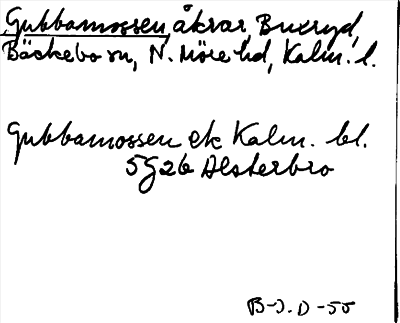 Gubbamossen, åkrar, Buxryd,
Bäckebo sn, N. Möre hd, Kalm. l.
Gubbamossen ek Kalm. bl.
5G2b Alsterbro
B-J. D -55